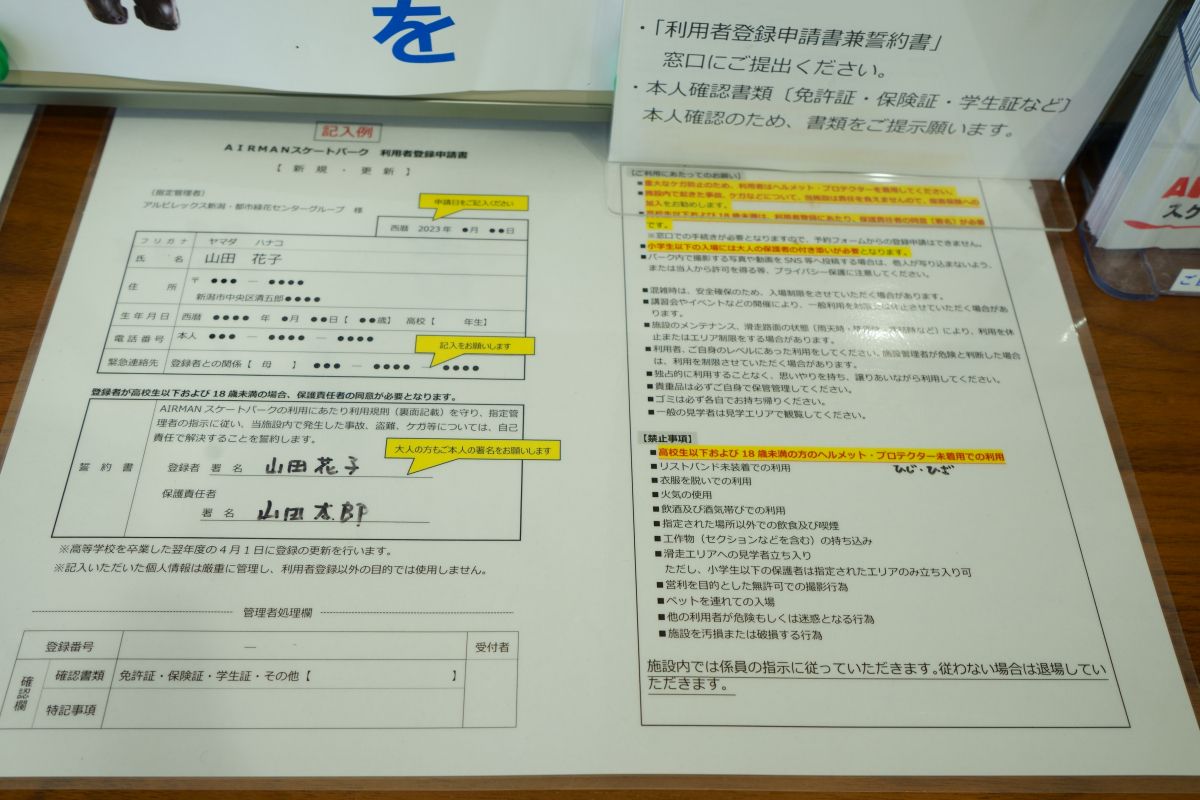 を
・「利用者登録申請書兼誓約書」
窓口にご提出ください。
・本人確認書類〔免許証・保険証・学生証など〕
本人確認のため、書類をご提示願います。
記入例
AIRMANスケートパーク 利用者登録申請書
【 新 規 ・ 更 新 】
（指定管理者）
アルビレックス新潟・都市緑花センターグループ 様
申請日をご記入ください
西暦 2023年 ●月 ●●日
フリガナ ヤマダ ハナコ
氏 名 山田 花子
住 所 〒 ●●● ― ●●●●
新潟市中央区清五郎●●●●
生年月日 西暦 ●●●● 年 ●月 ●●日【 ●●歳】 高校【 年生】
電話番号 本人 ●●● ― ●●●● ― ●●●●
記入をお願いします
緊急連絡先 登録者との関係【 母 】 ●●● ― ●●●● ― ●●●●
登録者が高校生以下および18歳未満の場合、保護責任者の同意が必要となります。
誓 約 書
AIRMANスケートパークの利用にあたり利用規則（裏面記載）を守り、指定管
理者の指示に従い、当施設内で発生した事故、盗難、ケガ等については、自己
責任で解決することを誓約します。
大人の方もご本人の署名をお願いします
登録者 署 名 山田花子
保護責任者
署 名 山田太郎
※高等学校を卒業した翌年度の4月1日に登録の更新を行います。
※記入いただいた個人情報は厳重に管理し、利用者登録以外の目的では使用しません。
管理者処理欄
登録番号 ― 受付者
確認欄 確認書類 免許証・保険証・学生証・その他【 】
特記事項
【ご利用にあたってのお願い】
■重大なケガ防止のため、利用者はヘルメット・プロテクターを着用してください。
■施設内で起きた事故、ケガなどについて、当施設は責任を負えませんので、傷害保険への
加入をお勧めします。
■高校生以下および18歳未満は、利用者登録にあたり、保護責任者の同意【署名】が必要
です。
※窓口での手続きが必要となりますので、予約フォームからの登録申請はできません。
■小学生以下の入場には大人の保護者の付き添いが必要となります。
■パーク内で撮影する写真や動画をSNS等へ投稿する場合は、他人が写り込まないよう、
または当人から許可を得る等、プライバシー保護に注意してください。
■混雑時は、安全確保のため、入場制限をさせていただく場合があります。
■講習会やイベントなどの開催により、一般利用を休止させていただく場合があ
ります。
■施設のメンテナンス、滑走路面の状態（雨天時・など）により、利用を休
止またはエリア制限をする場合があります。
■利用者、ご自身のレベルにあった利用をしてください。施設管理者が危険と判断した場合
は、利用を制限させていただく場合があります。
■独占的に利用することなく、思いやりを持ち、譲りあいながら利用してください。
■貴重品は必ずご自身で保管管理してください。
■ゴミは必ず各自でお持ち帰りください。
■一般の見学者は見学エリアで観覧してください。
【禁止事項】
■高校生以下および18歳未満の方のヘルメット・プロテクター未着用での利用
ひじ・ひざ
■リストバンド未装着での利用
■衣服を脱いでの利用
■火気の使用
■飲酒及び酒気帯びでの利用
■指定された場所以外での飲食及び喫煙
■工作物（セクションなどを含む）の持ち込み
■滑走エリアへの見学者立ち入り
ただし、小学生以下の保護者は指定されたエリアのみ立ち入り可
■営利を目的とした無許可での撮影行為
■ペットを連れての入場
■他の利用者が危険もしくは迷惑となる行為
■施設を汚損または破損する行為
施設内では係員の指示に従っていただきます。従わない場合は退場してい
ただきます。